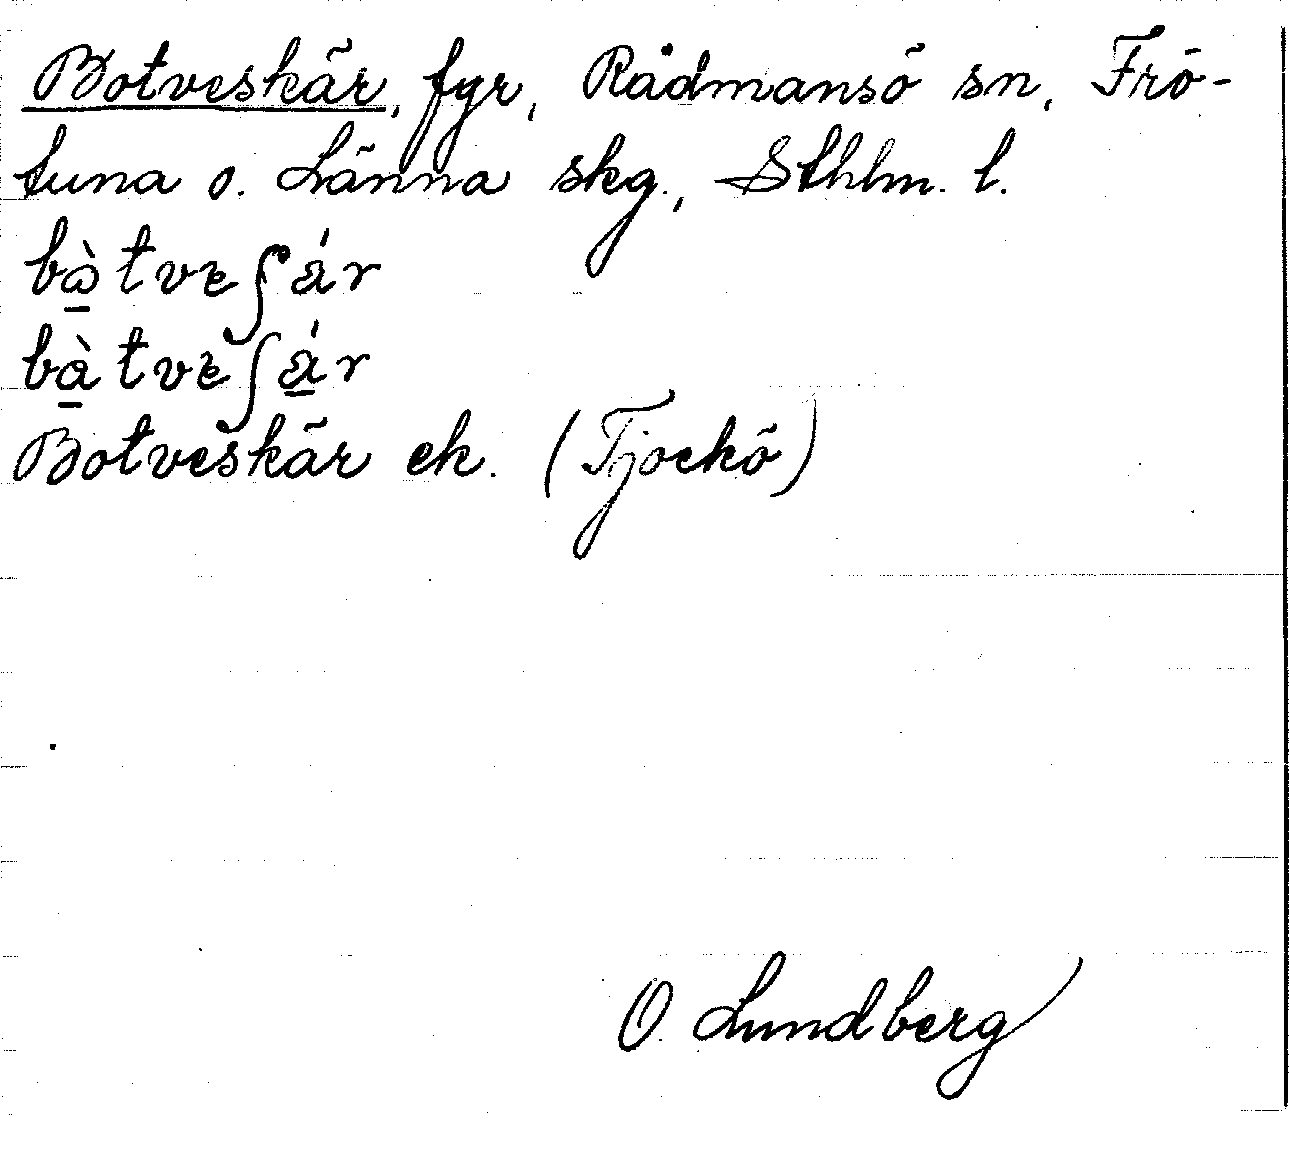 Botveskär, fyr, Rådmansö sn, Frö-
tuna o. Länna skg., Sthlm. l.
bàtveʃár
bàtveʃár
Botveskär ek. (Tjockö)
O. Lundberg